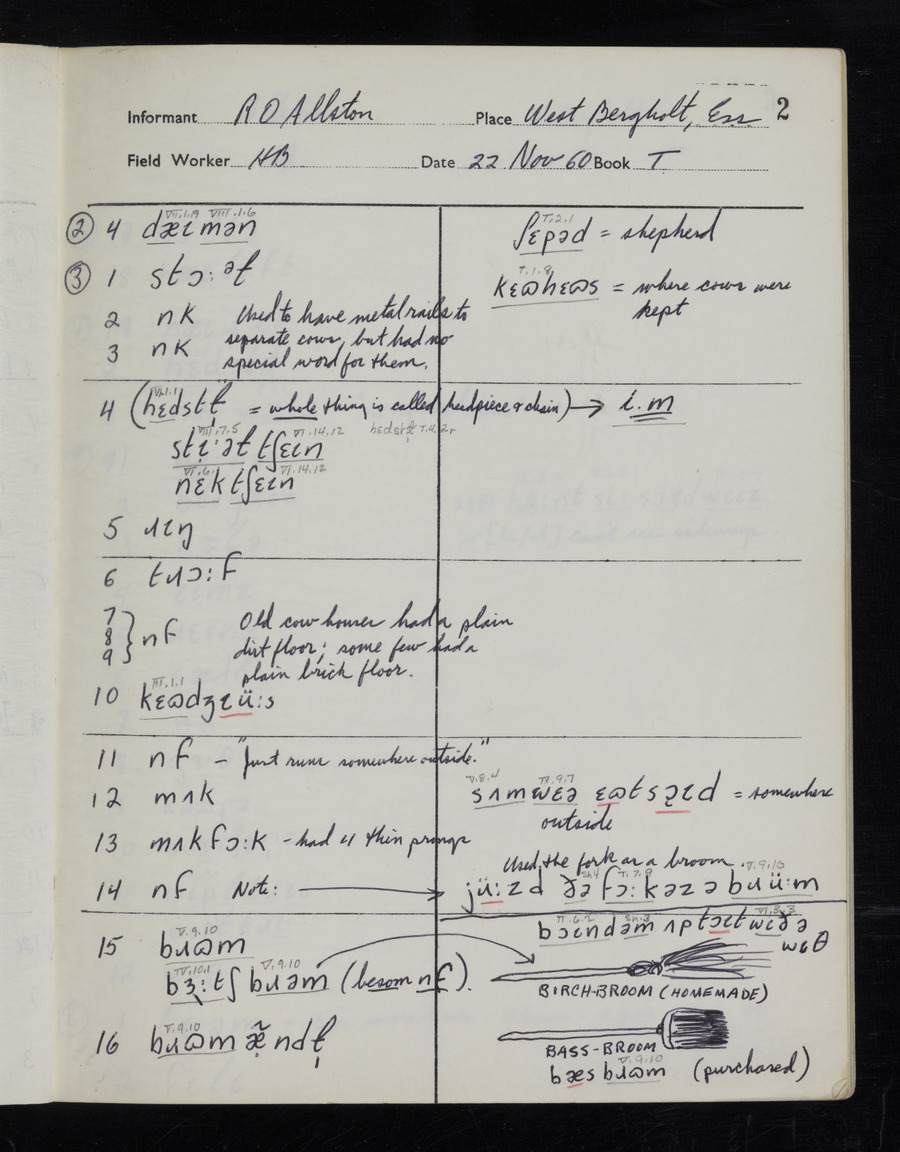 Informant R O Allston Place West Bergholt, Ess 2
Field Worker HB Date 22 Nov 60 Book T
② 4 dæɩmən
VII.1.19 VIII.1.6
③ 1 stɔ:əɫ
2 nk Used to have metal rails to
3 nk separate cows, but had no
special word for them.
4 (hɛdstɫ = whole thing is called headpiece & chain) → i.m
hɛdstɫ T.4.2r
VI.14.12
nɛk tʃɛɩn
VI.14.12
5 ɹɩŋ
6 tɹɔ:f
7
8 } nf Old cow houses had a plain
9 dirt floor; some few had a
plain brick floor.
III.1.1
10 kɛɷdʒɩü:s
11 nf – "Just runs somewhere outside."
12 mʌk
13 mʌk fɔ:k – had 4 thin prongs
14 nf Note: →
V.9.10
15 bɹɷm
V.10.1 V.9.10
bɜ:tʃ bɹəm (besom nf).
V.9.10
16 bɹɷm æ̃ndɫ
T.2.1
ʃɛpəd = shepherd
T.1.8
kɛɷhɛɷs = where cows were
kept
V.8.4 IX.9.7
sʌmwɛə ɛɷtsɩd = somewhere
outside
Used the fork as a broom.
V.9.10
jü:zd ðə fɔ:k əz ə bɹü:m
VI.3.3
bɔɩndəm ʌp tɔɩt wɩðə
wɩθ
BIRCH-BROOM (HOMEMADE)
BASS-BROOM
V.9.10
bæsbɹɷm (purchased)